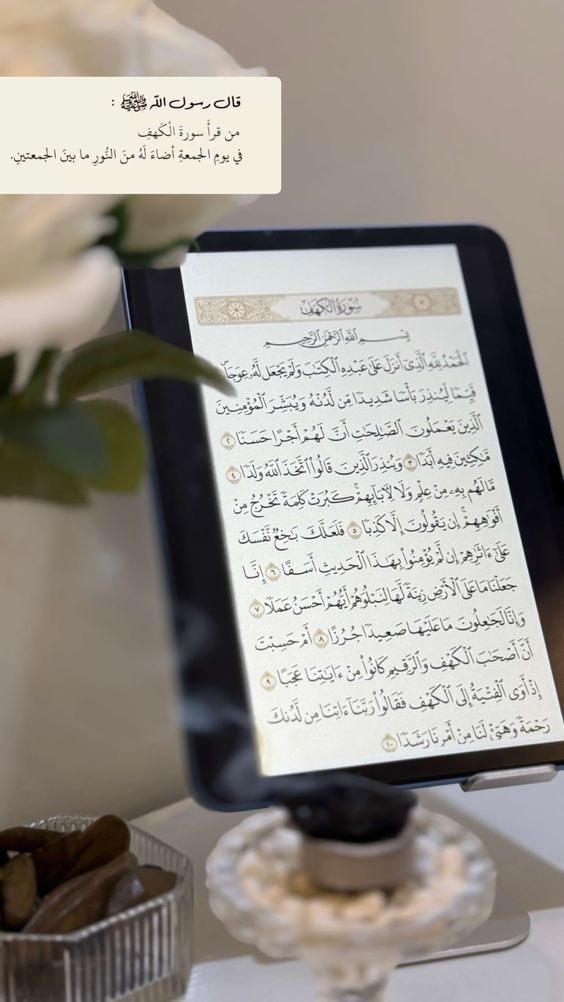 قال رسول الله ﷺ :
من قرأَ سورةَ الْكَهفِ
في يومِ الجمعةِ أضاءَ لَهُ منَ النُّورِ ما بينَ الجمعتينِ.
سُورَةُ الكَهْفِ
بِسْمِ ٱللَّهِ ٱلرَّحْمَٰنِ ٱلرَّحِيمِ
ٱلْحَمْدُ لِلَّهِ ٱلَّذِىٓ أَنزَلَ عَلَىٰ عَبْدِهِ ٱلْكِتَٰبَ وَلَمْ يَجْعَل لَّهُۥ عِوَجَاۜ
قَيِّمًا لِّيُنذِرَ بَأْسًا شَدِيدًا مِّن لَّدُنْهُ وَيُبَشِّرَ ٱلْمُؤْمِنِينَ
ٱلَّذِينَ يَعْمَلُونَ ٱلصَّٰلِحَٰتِ أَنَّ لَهُمْ أَجْرًا حَسَنًا ٢
مَّٰكِثِينَ فِيهِ أَبَدًا ٣ وَيُنذِرَ ٱلَّذِينَ قَالُوا۟ ٱتَّخَذَ ٱللَّهُ وَلَدًا ٤
مَّا لَهُم بِهِۦ مِنْ عِلْمٍ وَلَا لِـَٔابَآئِهِمْ ۚ كَبُرَتْ كَلِمَةً تَخْرُجُ مِنْ
أَفْوَٰهِهِمْ ۚ إِن يَقُولُونَ إِلَّا كَذِبًا ٥ فَلَعَلَّكَ بَٰخِعٌ نَّفْسَكَ
عَلَىٰٓ ءَاثَٰرِهِمْ إِن لَّمْ يُؤْمِنُوا۟ بِهَٰذَا ٱلْحَدِيثِ أَسَفًا ٦ إِنَّا
جَعَلْنَا مَا عَلَى ٱلْأَرْضِ زِينَةً لَّهَا لِنَبْلُوَهُمْ أَيُّهُمْ أَحْسَنُ عَمَلًا ٧
وَإِنَّا لَجَٰعِلُونَ مَا عَلَيْهَا صَعِيدًا جُرُزًا ٨ أَمْ حَسِبْتَ
أَنَّ أَصْحَٰبَ ٱلْكَهْفِ وَٱلرَّقِيمِ كَانُوا۟ مِنْ ءَايَٰتِنَا عَجَبًا ٩
إِذْ أَوَى ٱلْفِتْيَةُ إِلَى ٱلْكَهْفِ فَقَالُوا۟ رَبَّنَآ ءَاتِنَا مِن لَّدُنكَ
رَحْمَةً وَهَيِّئْ لَنَا مِنْ أَمْرِنَا رَشَدًا ١٠